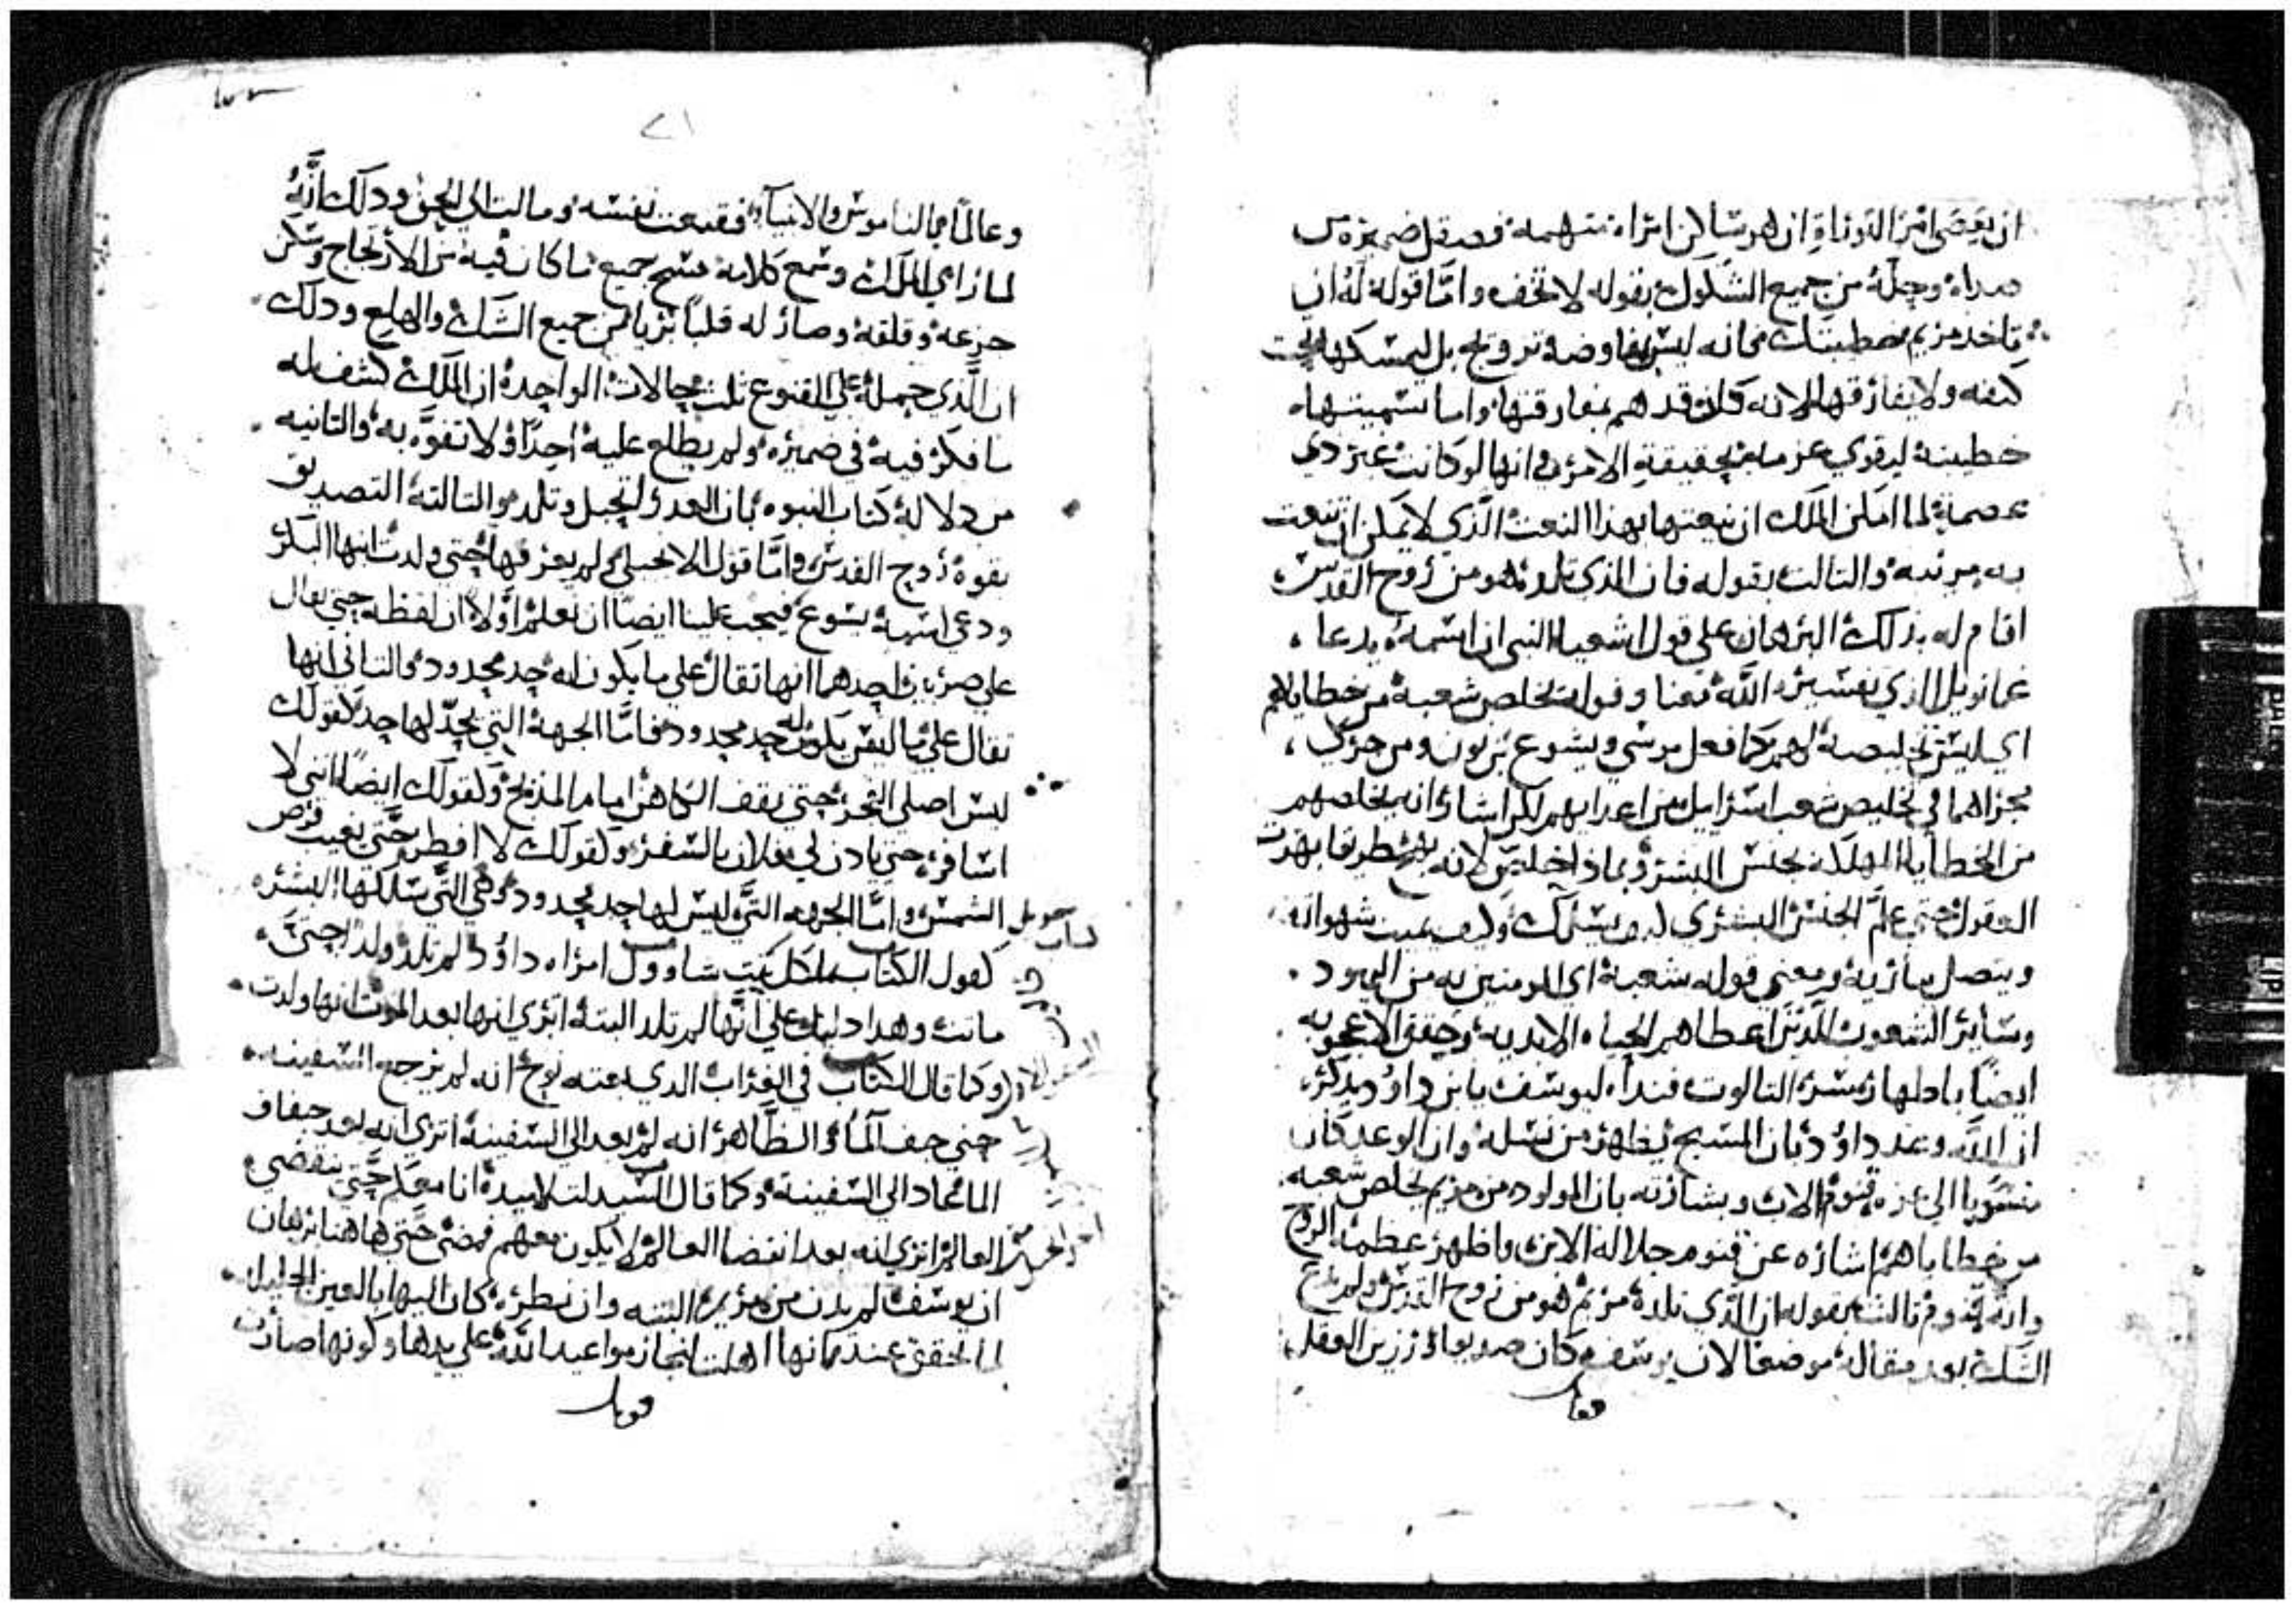 ان يعصى امر التوراة ان هو ساكن امراه متهمه فصقل ضميره من
وجله من جميع الشكوك بقوله لا تخف واما قوله له ان
تاخد مريم خطيبتك فانه ليس بمفاوضة تزويج بل ليمسكها تحت
كنفه ولا يفارقها لانه كان قد هم بمفارقتها واما تسميتها
خطيبته ليقوي عزمه بحقيقة الامر وانها لو كانت غير دي
عصمة لما امكن الملاك ان ينعتها بهذا النعت الذي لا يمكن ان تنعت
به مرتبه والثالت بقوله فان الذي تلده هو من روح القدس
اقام له بذلك البرهان على قول اشعيا النبي ان اسمه يدعا
عمانويل الذي تفسيره الله معنا وقوله يخلص شعبه من خطاياهم
اي ليس تخليصه لهم كما فعل موسى ويشوع بن نون ومن جرى
مجراهما في تخليص شعب اسرايل من اعدايهم لكن اشار انه يخلصهم
من الخطايا المهلكه لجنس البشر وبماذا خلص لانه طريقا بهرت
العقول حتى علم الجنس البشري كيف يسلك وكيف يميت شهواته
ويتصل بباريه ومعنى قوله شعبه اي المومنين به من اليهود
وساير الشعوب الذين اعطاهم الحياه الابديه وحقق الاعجوبه
ايضا باظهاره سر التالوت فنداه ليوسف يا بن داود يدكره
ان الله وعد داود بان المسيح يظهر من نسله وان الوعد كان
منسوبا الى عزه قنوم الاب وبشارته بان المولود من مريم يخلص شعبه
من خطاياهم اشاره عن قنوم جلالة الابن واظهر عظمة الروح
وانه قنوم تالت بقوله ان الذي تلده مريم هو من روح القدس ولم يدع
الشك بعد مقاله موضعا لان يوسف كان صديقا رزين العقل
٧١
وعالما بما لناموس والانبيآ فقنعت نفسه ومالت الى الحق ودلك انه
لما راى الملاك وسمع كلامه مسح جميع ما كان فيه من الارتجاج وسكن
جزعه وقلقه وصار له قلبا بريا من جميع الشك والهلع ودلك
ان الذي حمله على القنوع تلت حالات الواحدة ان الملاك كشف له
ما فكر فيه في ضميره ولم يطلع عليه احدا ولا تفوه به والتانيه
من دلالة كتاب النبوه بان العدرا تحبل وتلد والتالتة التصديق
بقوة روح القدس واما قول الانجيلي لم يعرفها حتى ولدت ابنها البكر
ودعي اسمه يسوع فيجب علينا ايضا ان نعلم اولا ان لفظة حتى تقال
على ضربين احدهما انها تقال على ما يكون له حد محدود والتاني انها
تقال على ما ليس يكون له حد محدود فاما الجهة التي يحد لها حد كقولك
ليس اصلي الفجر حتى يقف الكاهن امام المذبح وكقولك ايضا انني لا
اسافر حتى يادن لي فلان بالسفر وكقولك لا افطر حتى يغيب قرص
الشمس واما الجهه التي ليس لها حد محدود وهي التي سلكتها البشره
كقول الكتاب ملكل بنت شاوول امراه داود لم تلد ولدا حتى
ماتت وهدا دليل على انها لم تلد البتة اترى انها بعد الموت انها ولدت
وكما قال الكتاب في الغراب الدي بعته نوح انه لم يرجع السفينه
حتى جف المآ والظاهر انه لم يعد الى السفينة اترى انه بعد جفاف
الما عاد الى السفينة وكما قال السيد لتلاميده انا معكم حتى ينقضي
العالم اترى انه بعد انقضا العالم لا يكون معهم فمضى حتى هاهنا برهان
ان يوسف لم يدن من مريم البتة وان نظره كان اليها بالعين الجليل
لما تحقق عنده مكانها اهلت انجاز مواعيد الله على يدها وكونها صارت